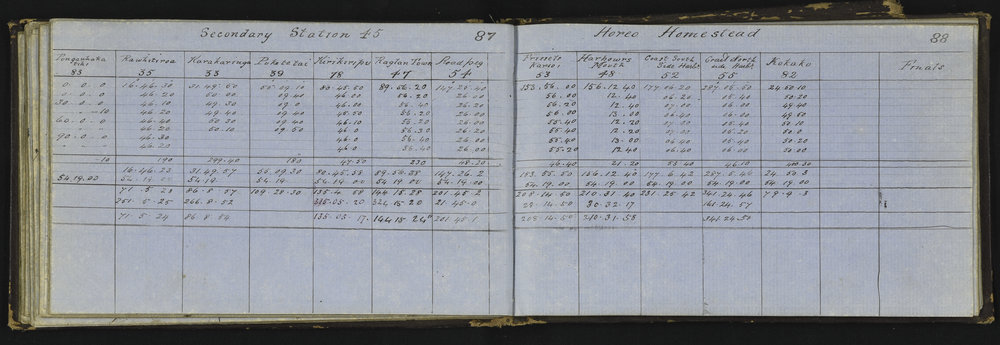 Secondary Station 45 87 Horeo Homestead 88
Kawhitiroa Karakaringa Kerikeripei Raglan Town Road peg Harbours Mouth Coast South Side Harbr Coast North Side Harbr Kokako Finals
83 35 33 39 78 47 54 53 48 52 55 82
0 . 0 . 0 16.46.30 31.49.60 55.09.10 80.45.50 89.56.20 147.26.40 153.56.00 156.12.40 177.06.20 287.05.50 24.50.10
46.20 50.00 09.40 46.00 56.20 26.00 56.00 12.40 06.20 05.40 50.20
30.0.0 46.10 49.30 09.0 46.00 56.40 26.20 56.20 12.40 07.00 06.00 49.40
-10 46.20 49.40 09.40 45.50 56.20 26.00 56.00 13.00 06.40 06.00 49.50
60.0.0 46.40 50.30 09.40 46.10 56.20 26.00 55.40 12.20 07.00 05.40 50.10
46.20 50.10 09.50 46.0 56.30 26.20 55.40 12.20 07.00 06.20 50.0
90.0.0 46.30 46.0 56.40 26.00 55.40 13.00 06.40 05.40 50.20
46.20 46.0 56.40 26.00 55.20 12.40 06.40 06.00 50.0
-10 190 299.40 150 47.50 230 48.20 46.40 21.20 53.40 46.10
16.46.23 31.49.57 55.09.30 80.45.58 147.26.2 153.55.50 156.12.40 177.6.42 287.5.46 24.50.3
54.19.00 54.19.00 54.19 54.19 54.19.00 54.19.00 54.19.00 54.19.00 54.19.00 54.19.00 54.19.00 54.19.00
71.5.23 86.8.57 109.28.30 135.4.58 144.15.28 201.45.2 208.14.50 210.31.40 231.25.42 341.24.46 79.9.3
251.5.25 266.8.52 315.05.20 324.15.20 21.45.0 28.14.50 30.32.17 161.24.57
71.5.24 86.8.54 135.05.17 144.15.24 201.45.1 208.14.50 210.31.58 341.24.51